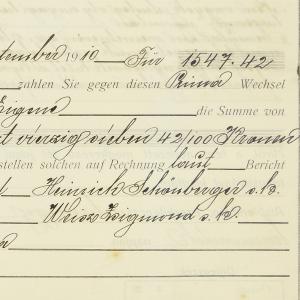 tember 1910 Für 1547.42
zahlen Sie gegen diesen Prima Wechsel
Eigene die Summe von
t vierzig sieben 42/100 Kronen
stellen solchen auf Rechnung laut Bericht
Heinrich Schönberger s.k.
Weisz Zsigmond s.k.